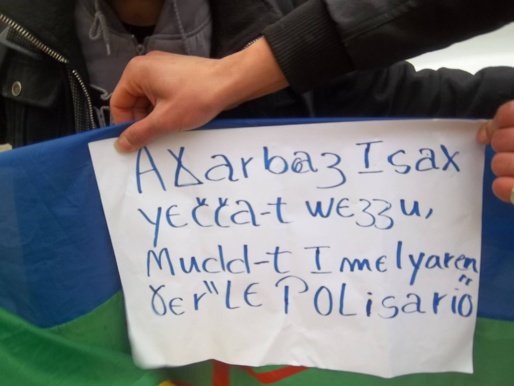 AƔarbaz Isax
yečča-t wezzu,
Mudd-t Imelyaren
Ɣer "LE POLisario"